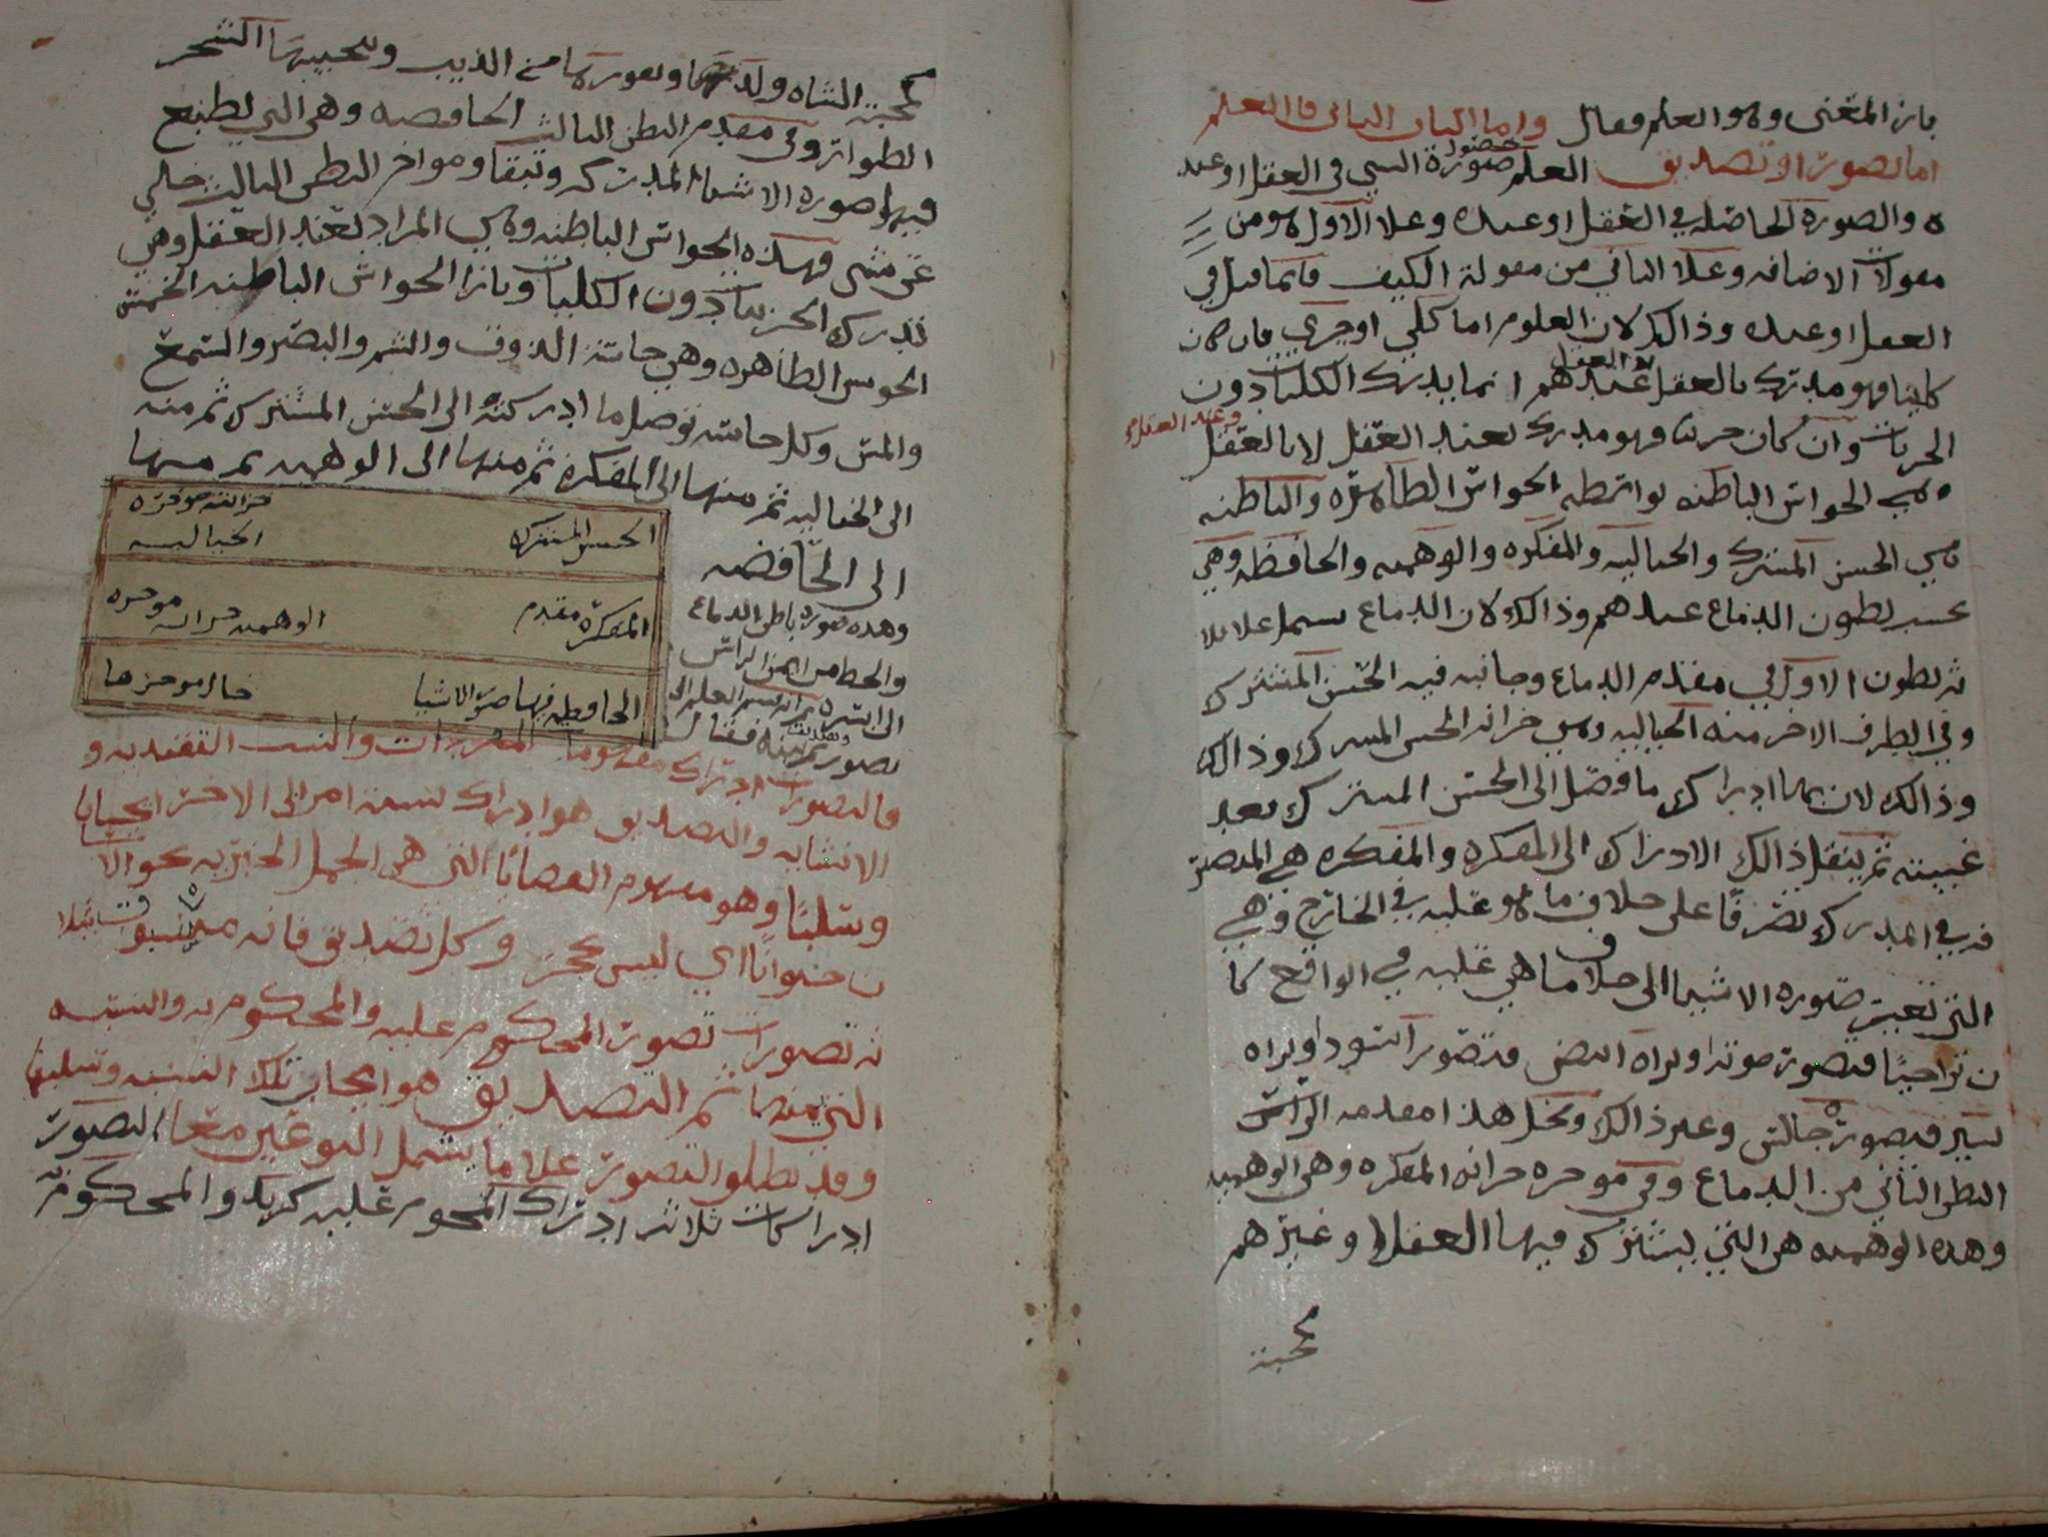 بازا المعنى وهو العلم فقال واما الباب الثاني فالعلم
اما تصور او تصديق العلم حضور صورة الشي في العقل او عند
ه والصورة الحاصله في العقل او عنده وعلا الاول هو من
مقولات الاضافه وعلا الثاني من مقولة الكيف فانما قيل في
العقل او عنده وذالك لان العلوم اما كلي او جزي فان كان
كليا فهو مدرك بالعقل عندهم انما يدرك الكليات دون
وعند العقل
الجزيات وان كان جزيا فهو مدرك بعند العقل لا بالعقل
وهي الحواس الباطنه بواسطه الحواس الظاهره والباطنه
هي الحس المشترك والخياليه والمفكره والوهميه والحافظه وهي
بحسب بطون الدماغ عندهم وذالك لان الدماغ يشمل علا ثلا
ثه بطون الاول في مقدم الدماغ وجانبه فيه الحس المشترك
وفي الطرف الاخر منه الخياليه وهي خزانه الحس المشترك وذالك
وذالك لان بها ادراك ما وصل الى الحس المشترك بعد
غيبته ثم ينقل ذالك الادراك الى المفكره والمفكره هي المتصر
فه في المدرك تصرفا على خلاف ما هو عليه في الخارج وهي
التي تغير صوره الاشيا الى خلاف ما هي عليه في الواقع كما
ن تراحيا فتصور موته او تراه ابيض فتصور اسود او تراه
يسير فتصوره جالس وغير ذالك ومحل هذا مقدمه الراس
البطن الثاني من الدماغ وفي موخره خزانه المفكره وهي الوهميه
وهذه الوهميه هي التي يشترك فيها العقلا وغيرهم
محبة
محبة الشاه ولدها ونفورها من الذيب وتحبيبها الشجر
الطواتر وفي مقدم البطن الثالث الحافصه وهي التي يطبع
فيها صوره الاشيا المدركه وتبقا وموخر البطن الثالث خلي
عن شي فهذه الحواس الباطنه وهي المراد بعند العقل وهي
تدرك الجزييات دون الكليات وبازا الحواس الباطنه الخمس
الحوس الظاهره وهي حاسة الذوق والشم والبصر والسمع
والمس وكل حاسه توصل ما ادركته الى الحس المشترك ثم منه
الى الخياليه ثم منها الى المفكره ثم منها الى الوهميه ثم منها
الى الحافضه
وهذه صوره باطن الدماغ
والخط من ايمن الراس
الى ايسره ثم انه قسم العلم الى
تصور وتصديق فقال
الحس المشترك خزانته موخره الخياليه
المفكره مقدم الوهميه خزانه موخره
الحافظه فيها صور الاشيا خال موخرها
فالتصور ادراك مفهوما المفردات والنسب التقيديه و
الانشايه والتصديق هو ادراك نسبة امر الى الاخر ايجابا
وسلبا وهو مفهوم القضايا التي هي الجمل الخبريه نحو الا
ن حيوانا اي ليس بحجر وكل تصديق فانه مسبوق بثلا
ثه تصورات تصور المحكوم عليه والمحكوم به والنسبه
التي بينهما ثم التصديق هو ايجاب تلك النسبه وسلبها
وقد يطلق التصور علا ما يشمل النوعين معا التصور
ادراكات ثلاثه ادراك المحوم عليه كزيد والمحكوم به